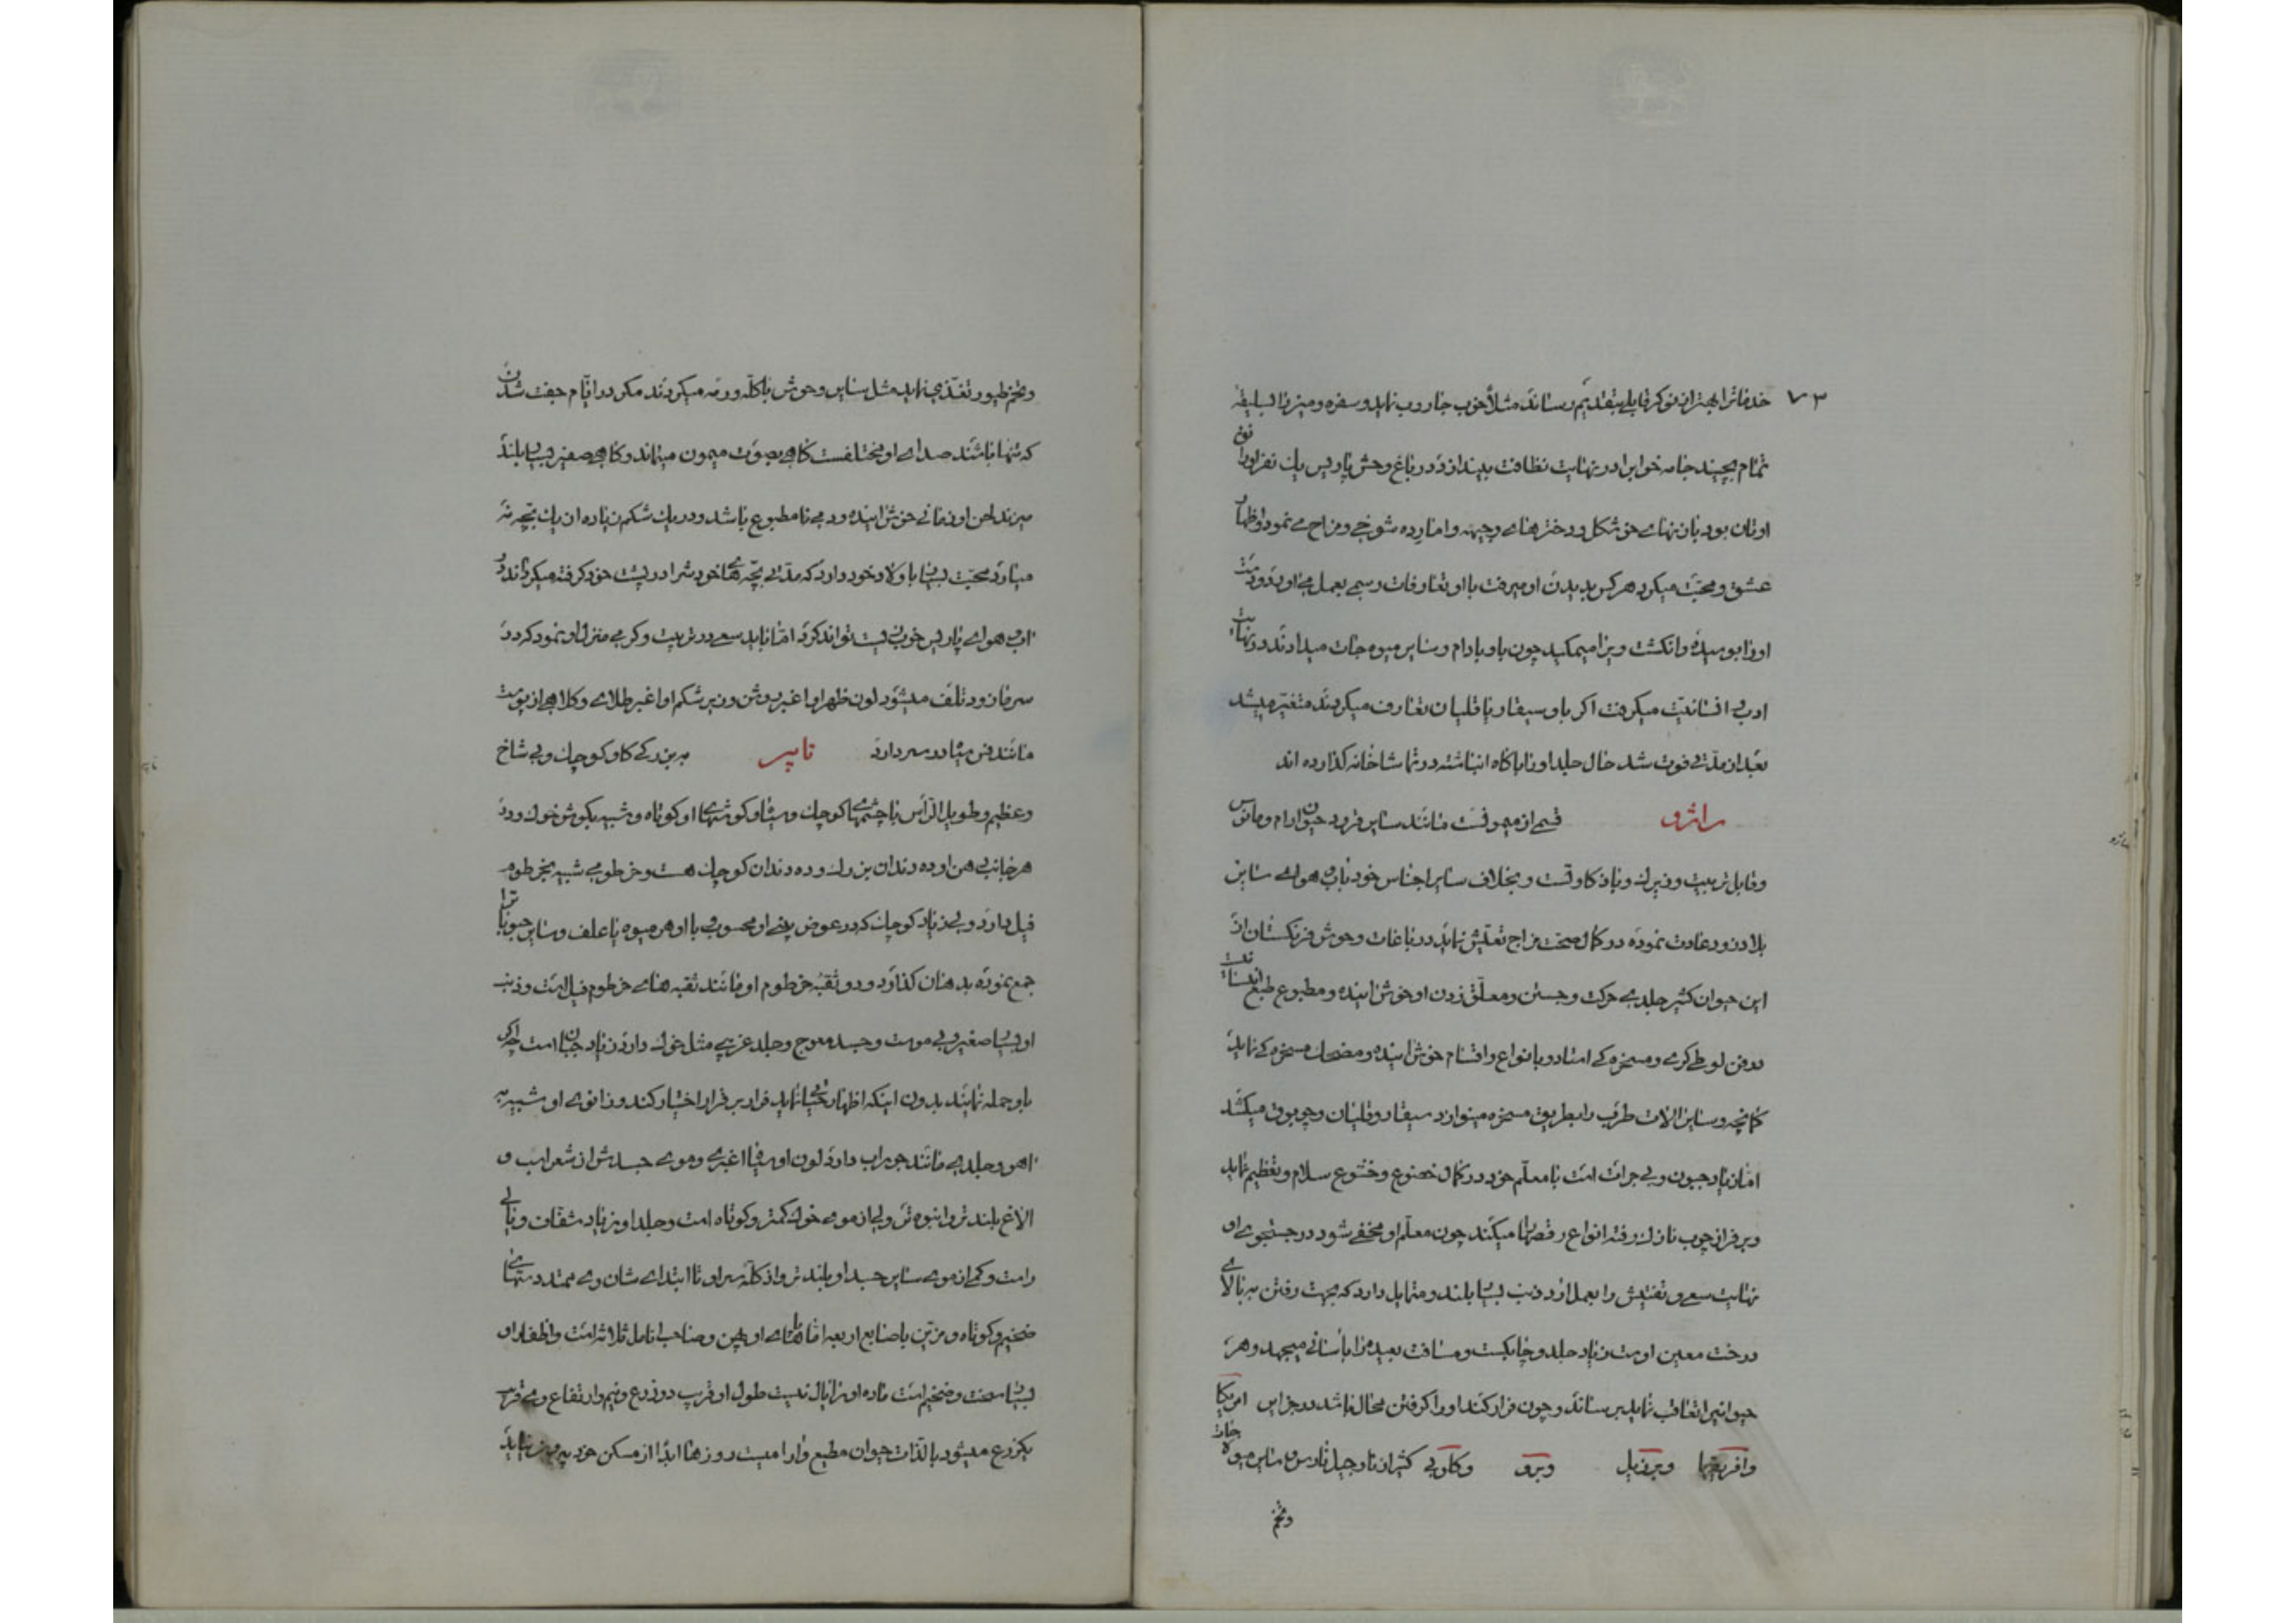 ۷۳
خدماترا بهتر از نوکر قابلی بتقدیم رساند مثلاً خوب جاروب نماید و سفره و میز را بسلیقه
تمام بچیند جامه خوابرا در نهایت نظافت بیندازد در باغ وحش پاریس یک نفر اورا
اوتان بود با زنهای خوشگل و دخترهای وجیهه و امارده شوخی و مزاح می نمود و اظهار
عشق و محبت میکرد هرکس بدیدن او میرفت با او تعارفات رسمی بعمل می اورد و دست
اورا بوسیده و انگشت ویرا میمکید چون باو بادام و سایر میوه جات میدادند در نهایت
ادب و انسانیت میگرفت اگر باو سیقار یا قلیان تعارف میکردند متغیر میشد
بعد از مدتی فوت شد حال جلد اورا با کاه انباشته در تماشاخانه گذارده اند
قسمی از میمونست مانند سایر قرود حیوان ارام و مانوس
و قابل تربیت و زیرک و با ذکاوتست و بخلاف سایر اجناس خود باب و هوای سایر
بلاد زود عادت نموده در کمال صحت مزاج تعیش نماید در باغات وحوش فرنگستان از
این حیوان کثیر جلدی حرکت و جستن و معلّق زدن او خوش اینده و مطبوع طبع انسانست
در فن لوطی گری و مسخره گی استاد و بانواع و اقسام خوش اینده و مضحک مسخره گی نماید
کمانچه و سایر الات طرب را بطریق مسخره مینوازد سیقار و قلیان و چوبوق میکشد
اما زیاد جبون و بی جرات است با معلّم خود در کمال خضوع و خشوع سلام و تعظیم نماید
و بر فراز چوب نازک رفته انواع رقصها میکند چون معلّم او مخفی شود در جستجوی او
نهایت سعی و تفتیش را بعمل ارد ذنب بسیار بلند و متمایل دارد که بجهت رفتن به بالای
درخت معین اوست زیاد جلد و چابکست و مسافت بعیده را بآسانی میجهد و هر
حیوانیرا تعاقب نماید برساند و چون فرار کند اورا گرفتن محال باشد در جزایر امریکا
و افریقیا و برزیل و پرو کثیر از نارجیل نارس و سایر میوه جات
و تخم
و تخم طیور تغذی نماید مثل سایر وحوش با گلّه و رمه میگردند مگر در ایّام جفت شدن
که تنها باشند صدای او مختلفست گاهی بصوت میمون میماند و گاهی صفیر بسیار بلند
میزند لحن او زمانی خوش اینده و دمی نا مطبوع باشد و در یک شکم زیاده از یک بچه نه
میاورد محبت بسیار باولاد خود دارد که مدتی بچه های خود را در پشت خود گرفته میگرداند در
اب و هوای پاریس خوب زیست تواند کرد امّا باید سعی در تربیت و گرمی منزل او نمود که در
سرما زود تلف میشود لون ظهر او اغبر روشن و زیر شکم او اغبر طلای و کلاهی از پوست
مانند فس میان در سر دارد تاپیر به بزرگی گاو کوچک و بی شاخ
و عظیم و طویل الرّأس با چشمهای کوچک و سیاه و گوشهای او کوتاه و شبیه بگوش خوک و در
هر جانب دهن او ده دندان بزرگ و ده دندان کوچک هست و خرطومی شبیه بخرطوم
فیل دارد ولی زیاد کوچک که در عوض بینی او محسوب و با او هر میوه یا علف و سایر حبوباترا
جمع نموده بدهان گذارد و دو ثقبه خرطوم او مانند ثقبه های خرطوم فیل است و ذنب
او بسیار صغیر و بی موست و جسد معوج و جلد عریسی مثل خوک دارد زیاد جبان است چه اگر
باو حمله نمایند بدون اینکه اظهار نماید قرار بر فرار اختیار کند و زانوی او شبیه به
اهو و جلدی مانند جوراب دارد لون او سیاه اغبری و موی جسدش از شعر اسب و
الاغ بلند تر و انبوه تر ولی از موی خوک کمتر و کوتاه است و جلد او زیاد شفاف و
راست و کمی از موی سایر جسد او بلند تر و از کلّه سر او تا ابتدای شان وی ممتد دستهای
ضخیم و کوتاه و مزیّن باصابع اربعه امّا پاهای او پهن و صاحب انامل ثلاثه است و اظفار او
بسیار سخت و ضخیم است ماده او را یال نیست طول او قریب دو ذرع و نیم و ارتفاع وی قریب
یکذرع میشود بالذات حیوان مطیع و ارامیست روزها ابدا از مسکن خود بیرون نیاید